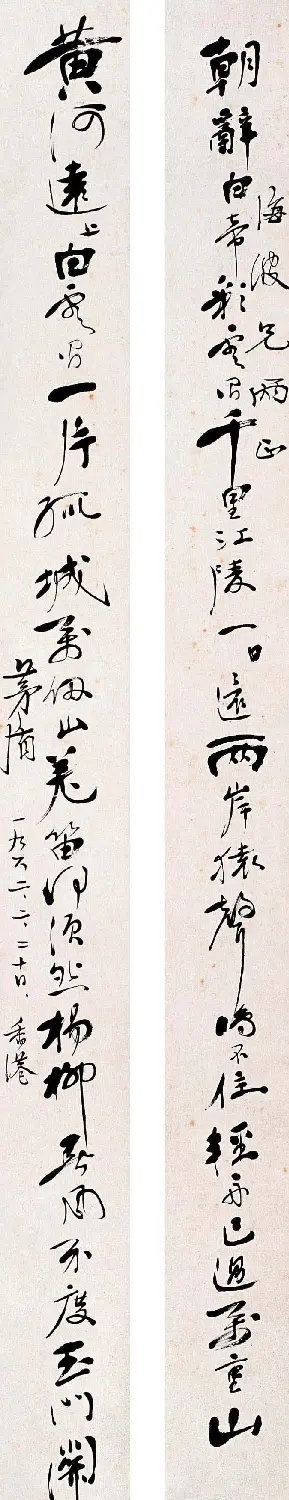 朝辭白帝彩雲間千里江陵一日還兩岸猿聲啼不住輕舟已過萬重山
海波兄兩正
黃河遠上白雲間一片孤城萬仞山羌笛何須怨楊柳春風不度玉門關
茅盾
一九六二、二、二十日、香港